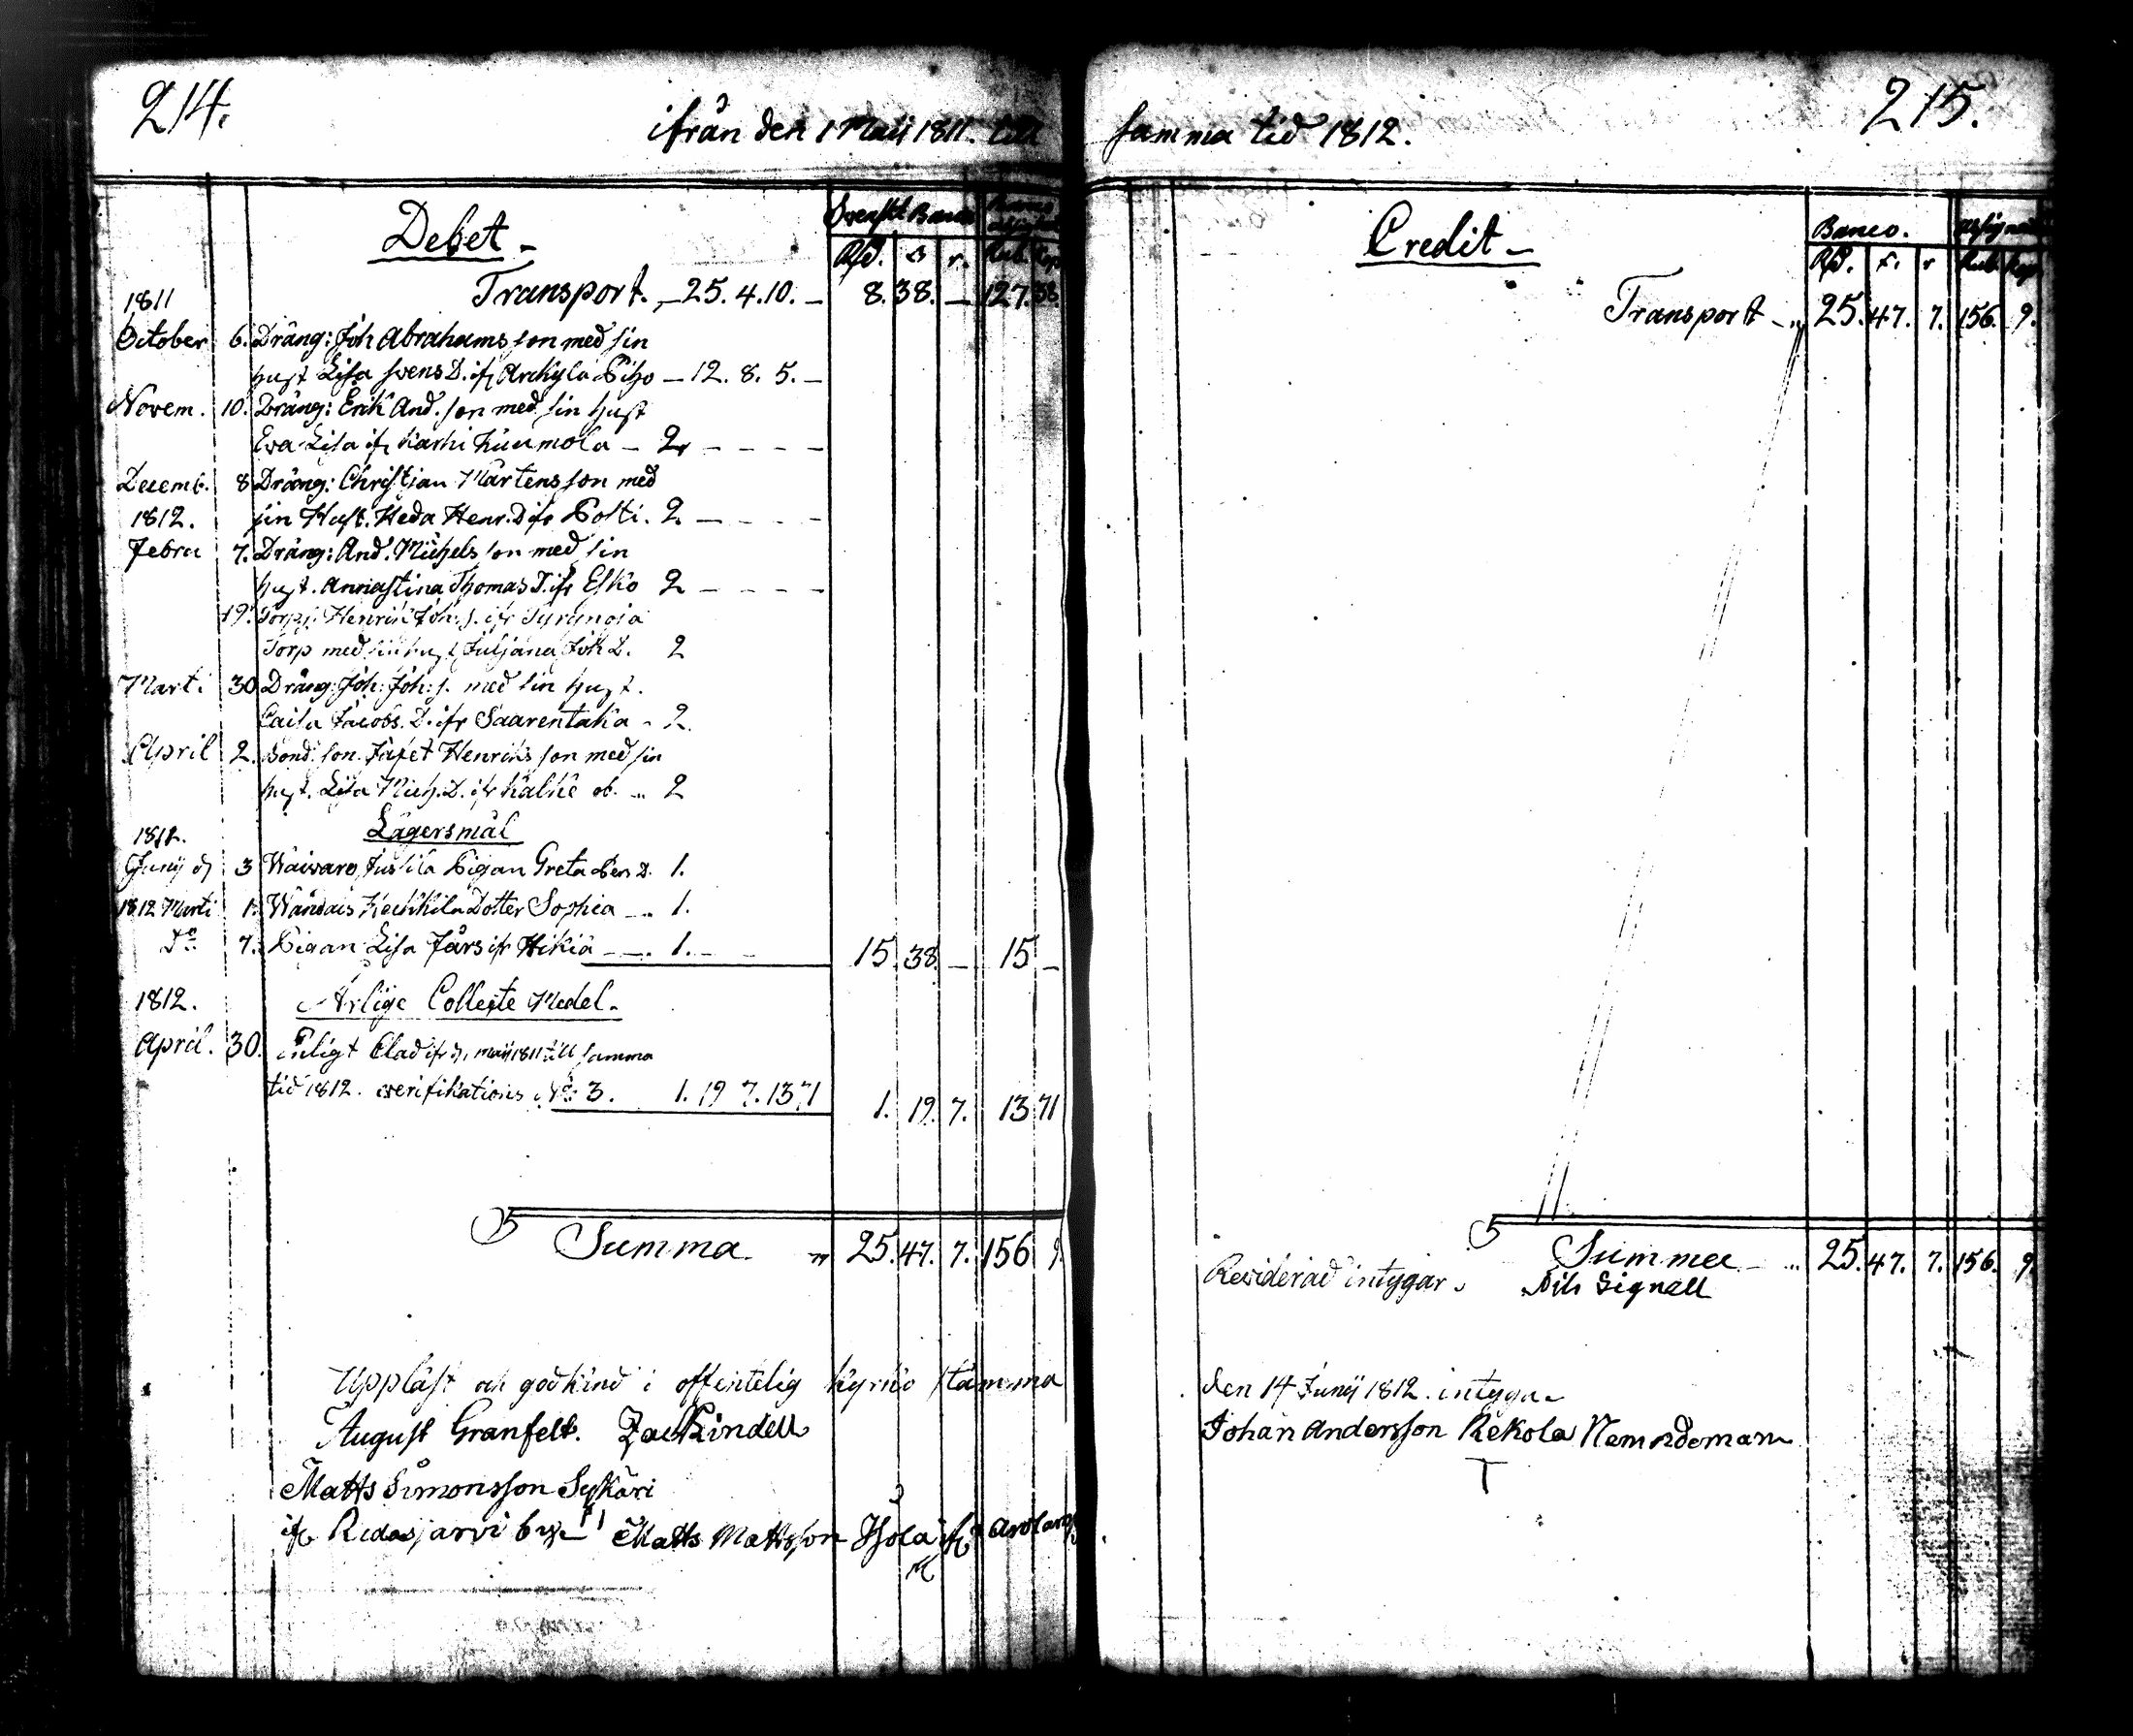 214.
ifrån den 1 Maij 1811. till
Debet
Svenskt Banco
Rd. s r. Rub. Kop
1811 Transport. 25. 4. 10. 8. 38. 127. 38.
October 6. Dräng: Joh Abrahamsson med sin
hust Lisa Svens D. ifr Arckyla 12. 8. 5.
Novem. 10. Dräng: Erik And. son med sin hust
Eva Lisa ifr Karhi Kuumola 2
Decemb. 8 Dräng: Christian Mårtensson med
1812. sin Hust. Heda Henr. D ifr Polti. 2.
Febru 7. Dräng: And. Michelsson med sin
hust. Annastina Thomas D. ifr Esko 2
19. Torp: Henrik Joh: s. ifr
Torp med sin hust Juljana Joh D. 2
Marti 30 Dräng: Joh: Joh: s. med sin hust.
Caisa Jacobs. D. ifr Saarentaka 2.
April 2. Bond. son. Jafet Henriksson med sin
hust. Lisa Mich. D. ifr Kälke 2
1812. Lägersmål
Junij 3 Pigan Greta D. 1.
1812 Marti 1. Dotter Sophia 1.
Do 7. Pigan Lisa Jårs ifr Hikiä 1. 15. 38. 15
1812. Årlige Collecte Medel
April. 30. Enligt maij 1811 till samma
tid 1812. verifikations No 3. 1. 19 7. 13 71 1. 19. 7. 13 71
Summa 25. 47. 7. 156 9.
Uppläst och godkänd i offentelig kyrko stämma
August Granfelt. Zac Kindell
Matts Simonsson Sykäri
ifr Ridasjärvi by Matts Mattsson
215.
samma tid 1812.
Credit
Banco.
Rd. r Rub. Kop
Transport 25. 47. 7. 156. 9.
Summa 25. 47. 7. 156. 9.
Reviderad intygar Nils Signell
den 14 Junij 1812. intyga
Johan Andersson Rekola Nemndeman